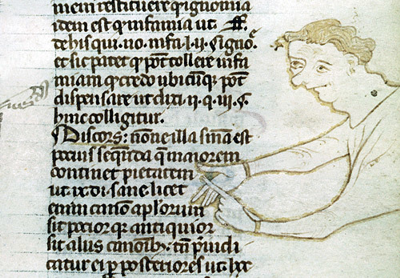 mem restituere q̄ ignomīa
idem est q̄ infamia ut. ff.
de his qui. no. infa. l. ii. signo᷒.
et sic patet q̄ pōt tollere infa
miam ⁊ credo ubicūq̄ pōt
dispensare ut dixi .ii. q. iii. §.
hinc colligitur.
Discors: tione illa sn̄ia est
pocius seq̄nda q̄ maiorem
continet pietatem
ut ix. di. sane licet
enim canon ap̄lorum
sit pocior q̄ antiquior
sit aliis canonib; tn̄ p̄iudi
catur ei p̄ posteriores ut lxx